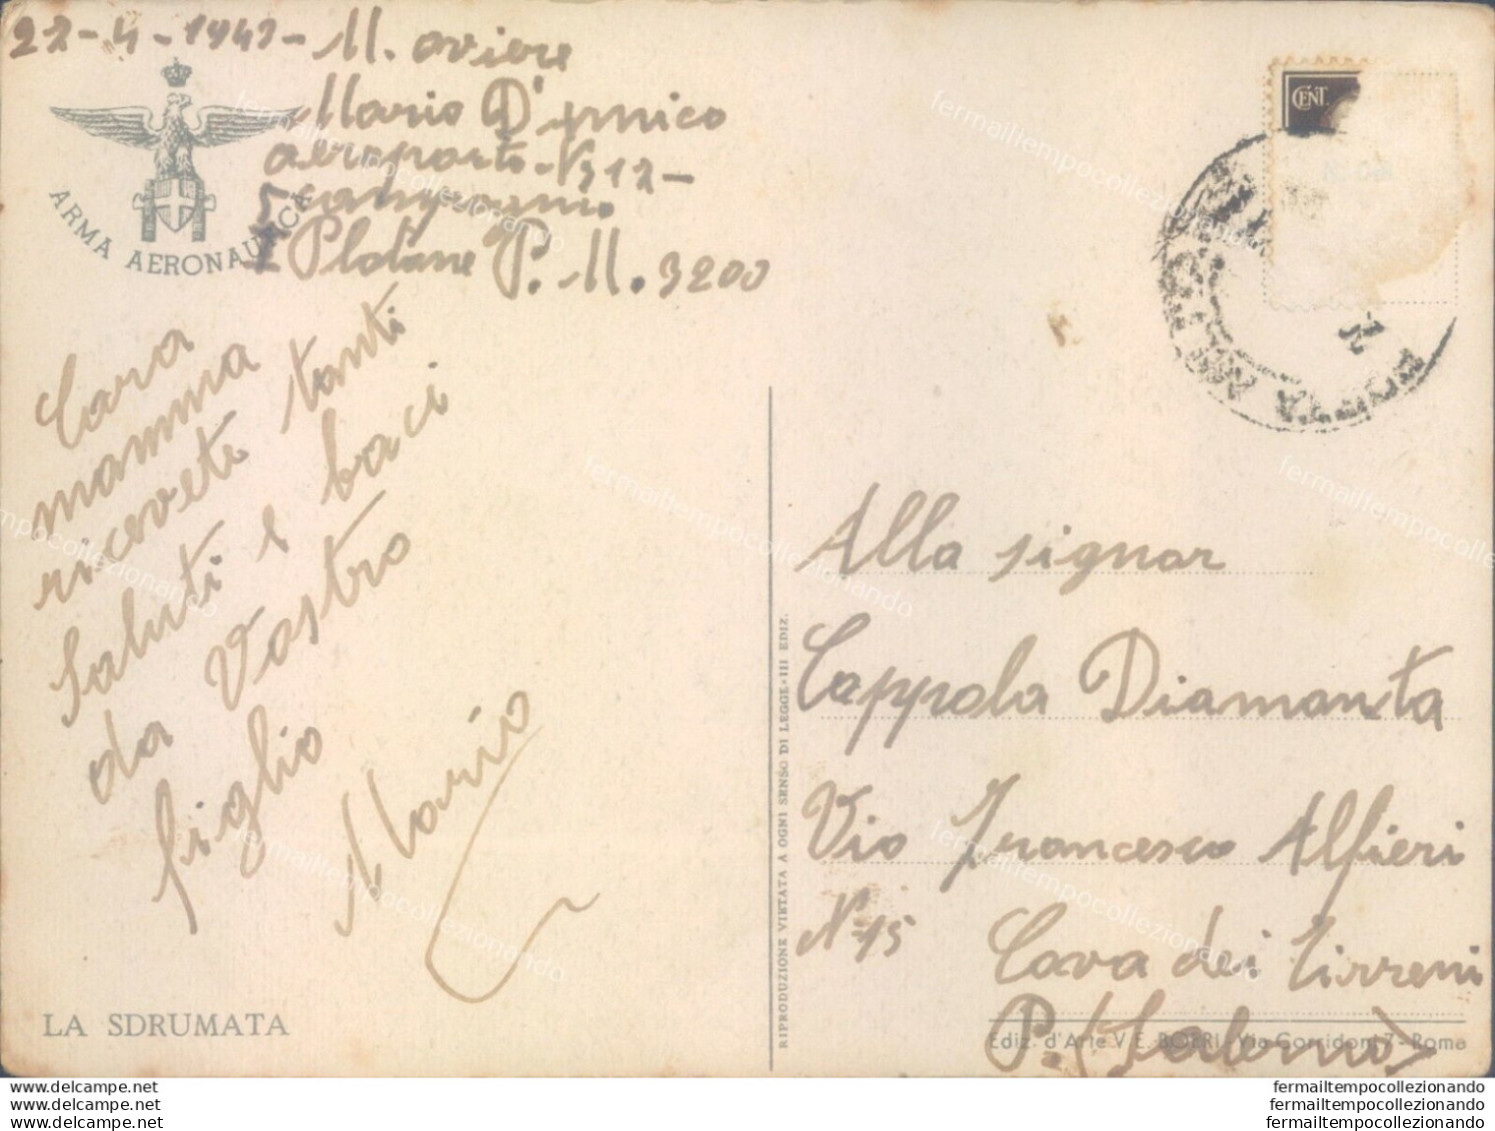 M. aviere
Mario D'
aeroporto N 312 -
P. M. 3200
ARMA AERONAUTICA
CENT.
POSTA
Cara
mamma
ricevete tanti
Saluti e baci
da Vostro
figlio
Mario
LA SDRUMATA
RIPRODUZIONE VIETATA A OGNI SENSO DI LEGGE - III EDIZ.
Alla signor
Cappola Diamanta
Via Francesco Alfieri
N 15
Cava dei Tirreni
P. (Salerno)
Ediz. d'Arte V. E. BOERI - Via Corridoni 7 - Roma
www.delcampe.net
fermailtempocollezionando
fermailtempocollezionando
fermailtempocollezionando